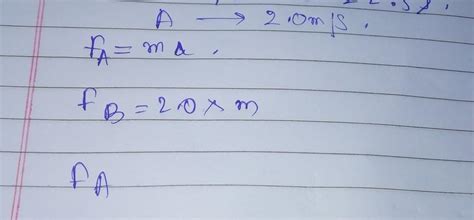 A → 2.0m/s.
f_A = ma.
f_B = 2.0 × m
f_A